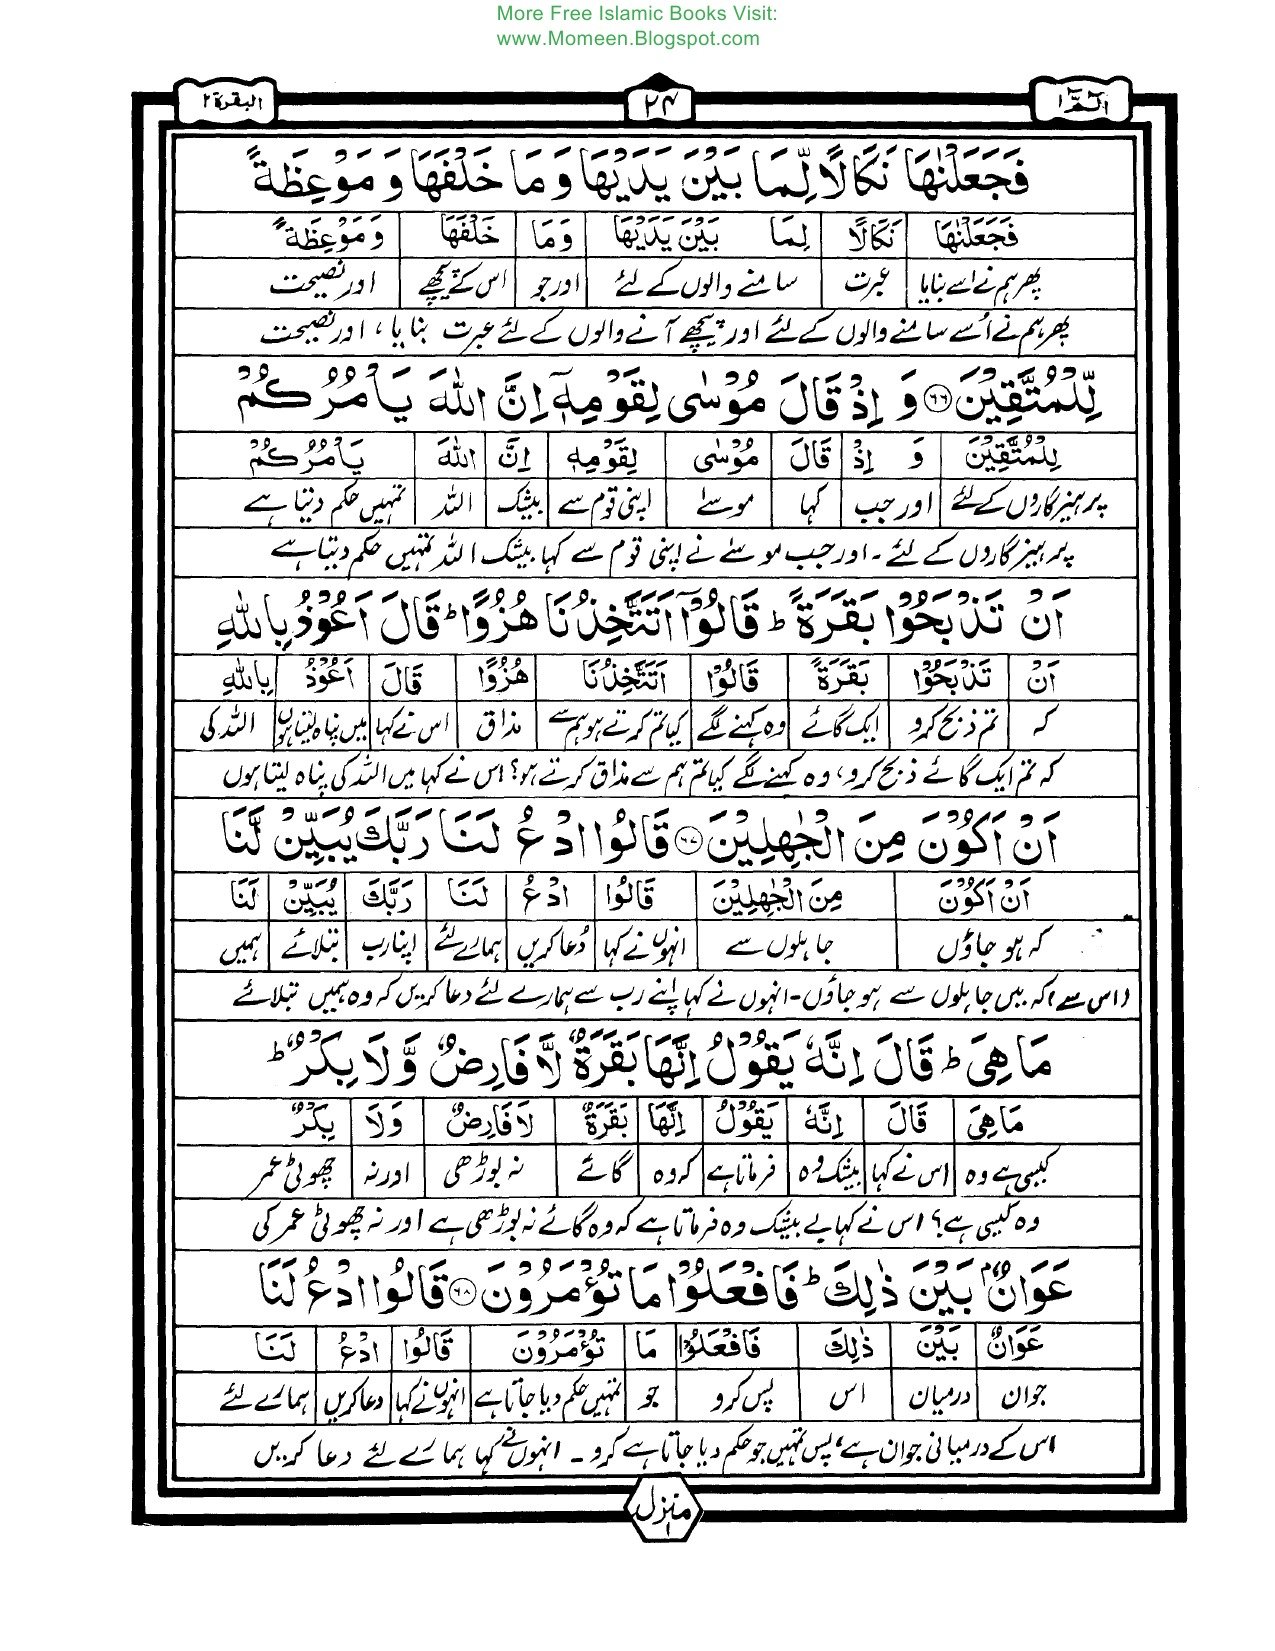 More Free Islamic Books Visit:
www.Momeen.Blogspot.com
الٓمّٓ ۱ ۲۴ البقرة ۲
فَجَعَلْنٰهَا نَكَالًا لِّمَا بَيْنَ يَدَيْهَا وَ مَا خَلْفَهَا وَ مَوْعِظَةً
فَجَعَلْنٰهَا نَكَالًا لِمَا بَيْنَ يَدَيْهَا وَمَا خَلْفَهَا وَمَوْعِظَةً
پھر ہم نے اسے بنایا عبرت سامنے والوں کے لئے اور جو اس کے پیچھے اور نصیحت
پھر ہم نے اُسے سامنے والوں کے لئے اور پیچھے آنے والوں کے لئے عبرت بنایا، اور نصیحت
لِّلْمُتَّقِيْنَ ۶۶ وَ اِذْ قَالَ مُوْسٰى لِقَوْمِهٖٓ اِنَّ اللّٰهَ يَاْمُرُكُمْ
لِلْمُتَّقِيْنَ وَ اِذْ قَالَ مُوْسٰى لِقَوْمِهٖ اِنَّ اللّٰهَ يَاْمُرُكُمْ
پرہیزگاروں کے لئے اور جب کہا موسےٰ اپنی قوم سے بیشک اللہ تمہیں حکم دیتا ہے
پرہیزگاروں کے لئے ۔ اور جب موسےٰ نے اپنی قوم سے کہا بیشک اللہ تمہیں حکم دیتا ہے
اَنْ تَذْبَحُوْا بَقَرَةً ؕ قَالُوْٓا اَتَتَّخِذُنَا هُزُوًا ؕ قَالَ اَعُوْذُ بِاللّٰهِ
اَنْ تَذْبَحُوْا بَقَرَةً قَالُوْٓا اَتَتَّخِذُنَا هُزُوًا قَالَ اَعُوْذُ بِاللّٰهِ
کہ تم ذبح کرو ایک گائے وہ کہنے لگے کیا تم کرتے ہو ہم سے مذاق اس نے کہا میں پناہ لیتا ہوں اللہ کی
کہ تم ایک گائے ذبح کرو، وہ کہنے لگے کیا تم ہم سے مذاق کرتے ہو؟ اس نے کہا میں اللہ کی پناہ لیتا ہوں
اَنْ اَكُوْنَ مِنَ الْجٰهِلِيْنَ ۶۷ قَالُوا ادْعُ لَنَا رَبَّكَ يُبَيِّنْ لَّنَا
اَنْ اَكُوْنَ مِنَ الْجٰهِلِيْنَ قَالُوا ادْعُ لَنَا رَبَّكَ يُبَيِّنْ لَنَا
کہ ہو جاؤں جاہلوں سے انہوں نے کہا دُعا کریں ہمارے لئے اپنا رب بتلائے ہمیں
(اس سے) کہ میں جاہلوں سے ہو جاؤں - انہوں نے کہا اپنے رب سے ہمارے لئے دعا کریں کہ وہ ہمیں بتلائے
مَا هِىَ ؕ قَالَ اِنَّهٗ يَقُوْلُ اِنَّهَا بَقَرَةٌ لَّا فَارِضٌ وَّلَا بِكْرٌ ؕ
مَا هِىَ قَالَ اِنَّهٗ يَقُوْلُ اِنَّهَا بَقَرَةٌ لَا فَارِضٌ وَلَا بِكْرٌ
کیسی ہے وہ اس نے کہا بیشک وہ فرماتا ہے کہ وہ گائے نہ بوڑھی اور نہ چھوٹی عمر
وہ کیسی ہے؟ اس نے کہا بے بیشک وہ فرماتا ہے کہ وہ گائے نہ بوڑھی ہے اور نہ چھوٹی عمر کی
عَوَانٌۢ بَيْنَ ذٰلِكَ ؕ فَافْعَلُوْا مَا تُؤْمَرُوْنَ ۶۸ قَالُوا ادْعُ لَنَا
عَوَانٌ بَيْنَ ذٰلِكَ فَافْعَلُوْا مَا تُؤْمَرُوْنَ قَالُوا ادْعُ لَنَا
جوان درمیان اس پس کرو جو تمہیں حکم دیا جاتا ہے انہوں نے کہا دعا کریں ہمارے لئے
اس کے درمیانی جوان ہے، پس تمہیں جو حکم دیا جاتا ہے کرو ۔ انہوں نے کہا ہمارے لئے دعا کریں
منزل ۱